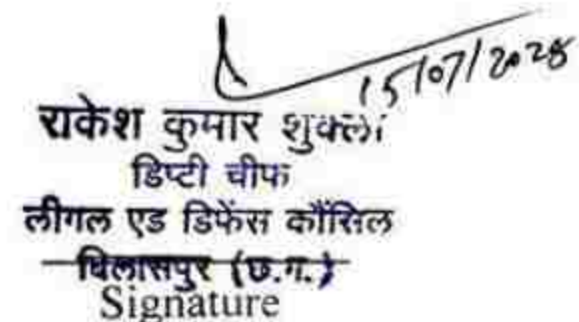 15/07/2025
राकेश कुमार शुक्ला
डिप्टी चीफ
लीगल एड डिफेंस कौंसिल
बिलासपुर (छ.ग.)
Signature